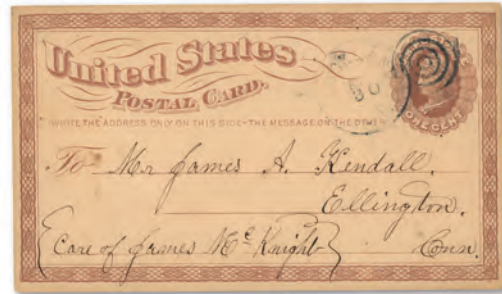 United States
POSTAL CARD.
WRITE THE ADDRESS ONLY ON THIS SIDE-THE MESSAGE ON THE OTHER
To Mr James A. Kendall.
Ellington.
(Care of James McKnight) Conn.
ONE CENT